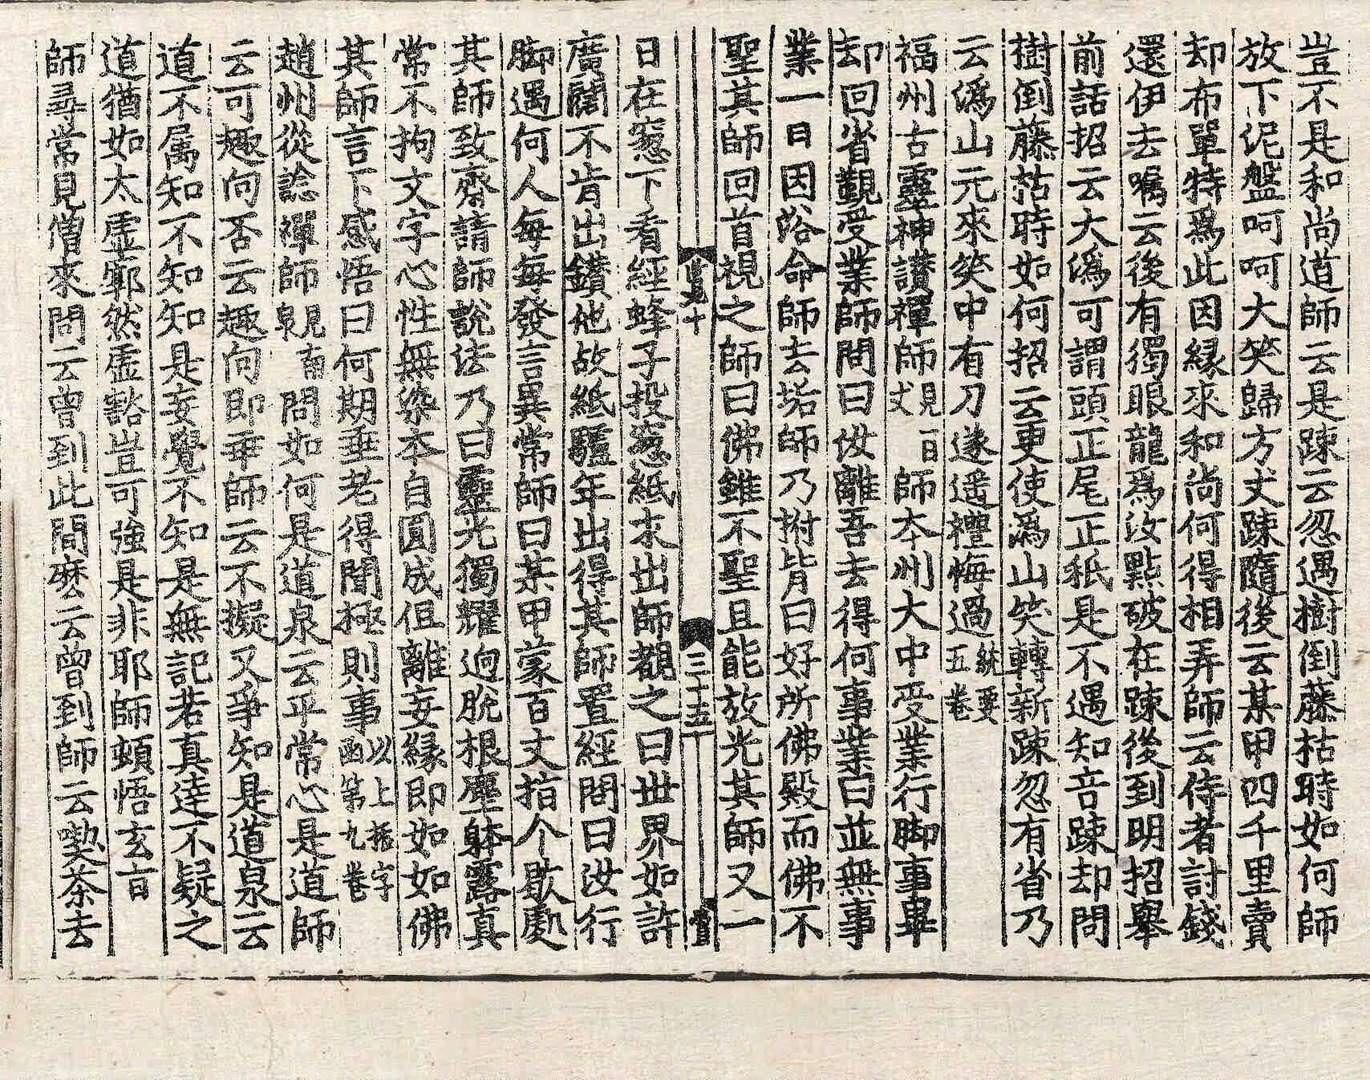 豈不是和尚道師云是踈云忽遇樹倒藤枯時如何師
放下泥盤呵呵大笑歸方丈踈隨後云某甲四千里賣
却布單特爲此因縁來和尚何得相弄師云侍者討錢
還伊去嘱云後有獨眼龍爲汝點破在踈後到明招擧
前話招云大潙可謂頭正尾正秖是不遇知音踈却問
樹倒藤枯時如何招云更使潙山笑轉新踈忽有省乃
云潙山元來笑中有刀遂遥禮悔過 統要五卷
福州古靈神讃禪師 見百丈 師本州大中受業行脚事畢
却回省覲受業師問曰汝離吾去得何事業曰並無事
業一日因浴命師去垢師乃拊背曰好所佛殿而佛不
聖其師回首視之師曰佛雖不聖且能放光其師又一
三十五
日在窓下看經蜂子投窓紙求出師覩之曰世界如許
廣闊不肯出鑚他故紙驢年出得其師置經問曰汝行
脚遇何人每每發言異常師曰某甲蒙百丈指个歇處
其師致齋請師說法乃曰靈光獨耀逈脫根塵躰露真
常不拘文字心性無染本自圓成但離妄縁即如如佛
其師言下感悟曰何期垂老得聞極則事 以上振字函第九卷
趙州從諗禪師 見南泉 問如何是道泉云平常心是道師
云可趣向否云趣向即乖師云不擬又爭知是道泉云
道不属知不知知是妄覺不知是無記若真達不疑之
道猶如太虛廓然虛豁豈可強是非耶師頓悟玄旨
師尋常見僧來問云曾到此間麽云曾到師云喫茶去